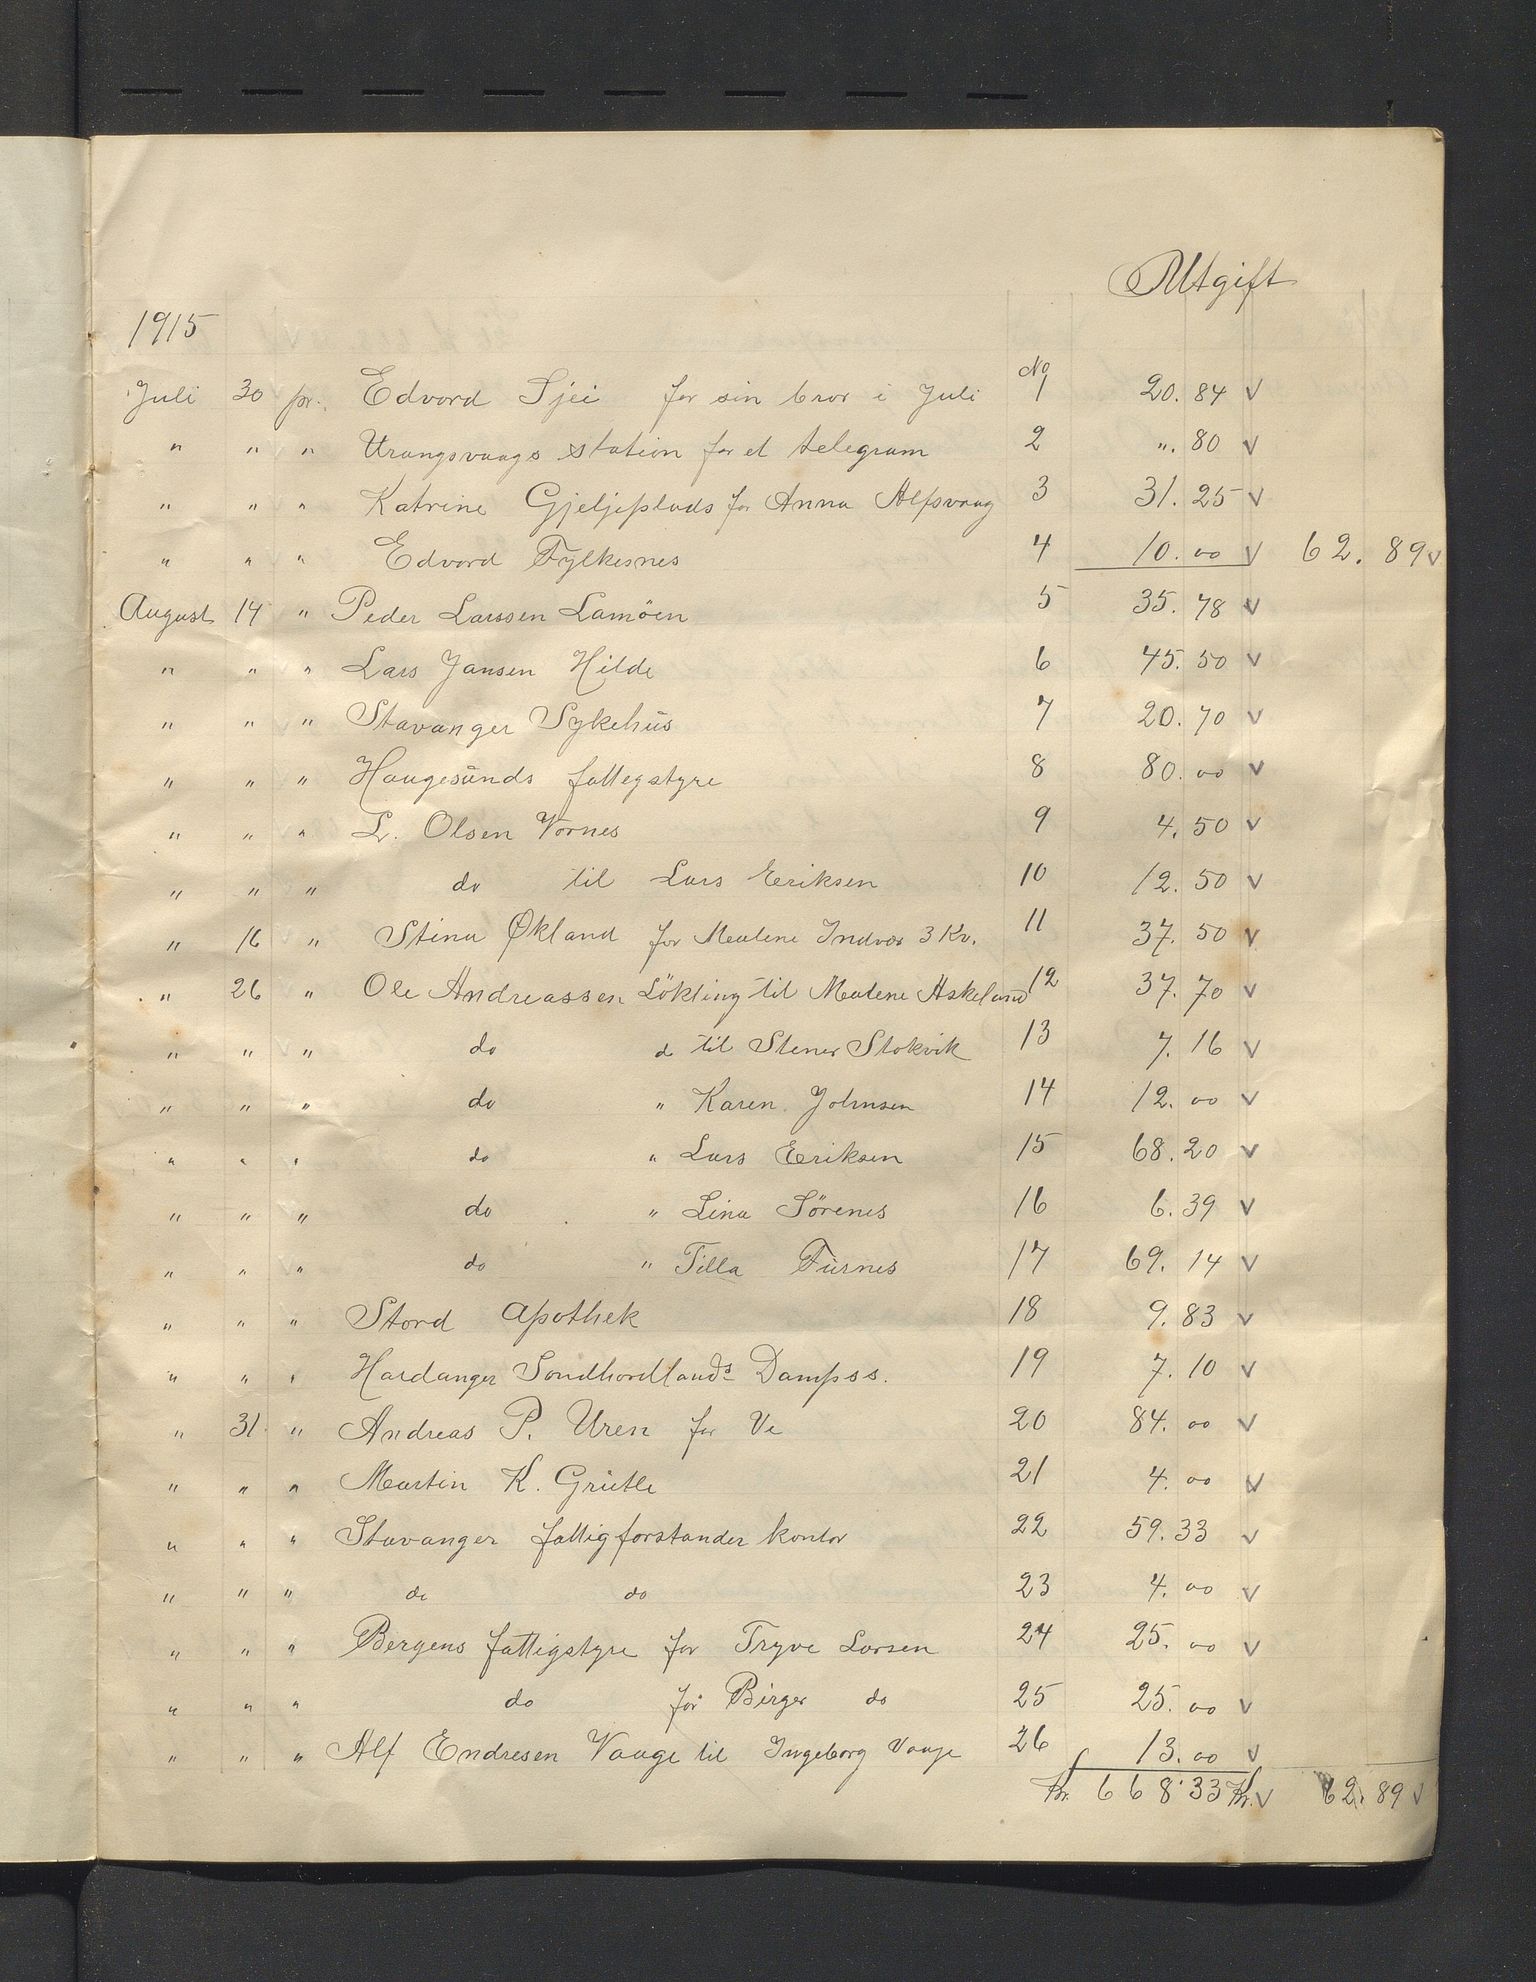 Utgift
1915
No
Juli 30 pr. Edvord Sjei for sin bror i Juli 1 20. 84 v
" " " Urangsvaags station for et telegram 2 ". 80 v
" " " Katrine Gjeljeplads for Anna Alfsvaag 3 31. 25 v
" " " Edvord Fylkesnes 4 10. 00 v 62. 89 v
August 14 " Peder Larssen Lamöen 5 35. 78 v
" " " Lars Jansen Hilde 6 45. 50 v
" " " Stavanger Sykehus 7 20. 70 v
" " " Haugesunds fattegstyre 8 80. 00 v
" " " L. Olsen Vornes 9 4. 50 v
" " " do til Lars Eriksen 10 12. 50 v
" 16 " Stina Økland for Malene Indvær 3 Kv. 11 37. 50 v
" 26 " Ole Andreassen Lökling til Malene Askeland 12 37. 70 v
" " " do d til Stener Stokvik 13 7. 16 v
" " " do " Karen Johnsen 14 12. 00 v
" " " do " Lars Eriksen 15 68. 20 v
" " " do " Lina Sörenes 16 6. 39 v
" " " do " Tilla Furnes 17 69. 14 v
" " " Stord Apothek 18 9. 83 v
" " " Hardanger Söndhordlands Dampss. 19 7. 10 v
" 31 " Andreas P. Uren for Ve 20 84. 00 v
" " " Martin K. Grutle 21 4. 00 v
" " " Stavanger fattigforstander kontor 22 59. 33 v
" " " do do 23 4. 00 v
" " " Bergens fattigstyre for Tryve Larsen 24 25. 00 v
" " " do for Birger do 25 25. 00 v
" " " Alf Endresen Vaage til Ingeborg Vaage 26 13. 00 v
Kr. 668.33 Kr. v 62. 89 v